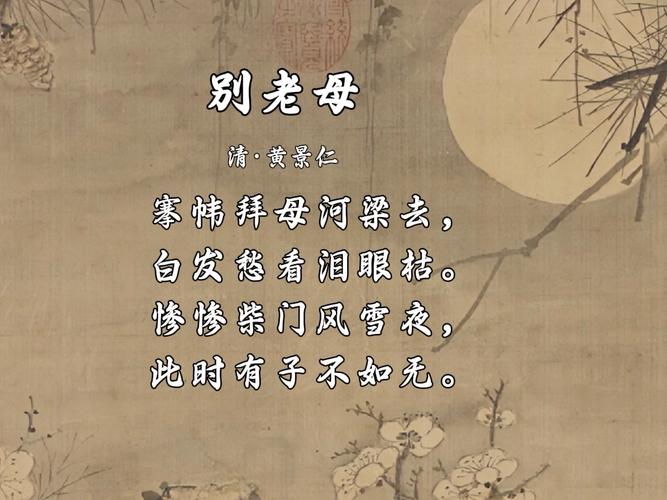 别老母
清·黄景仁
搴帏拜母河梁去，
白发愁看泪眼枯。
惨惨柴门风雪夜，
此时有子不如无。